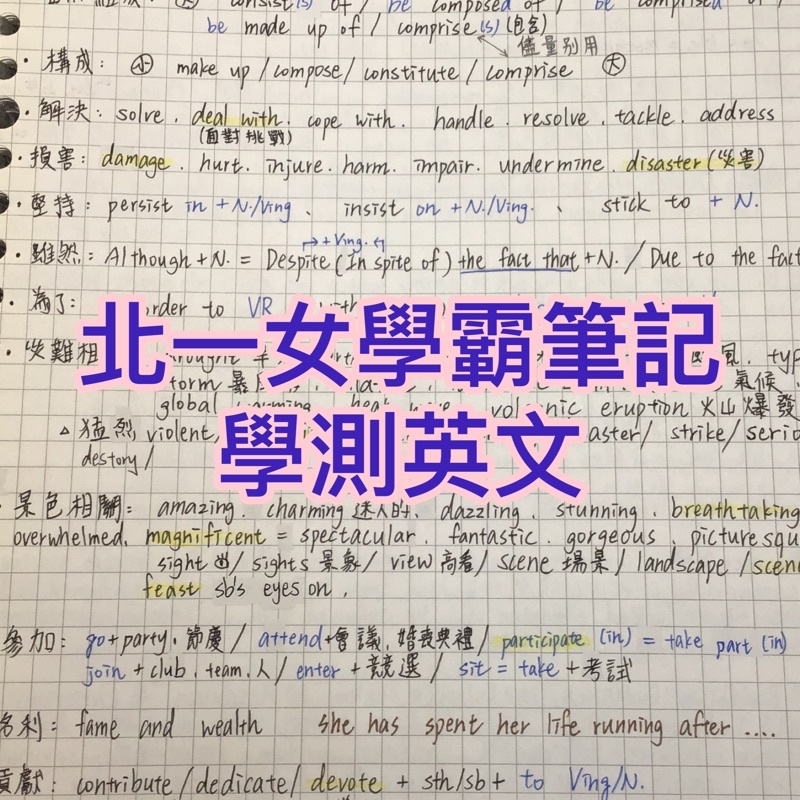 consist(s) of / be composed of / be comprised of
be made up of / comprise(s) (包含)
儘量別用
・構成: 小 make up / compose / constitute / comprise 大
・解決: solve. deal with. cope with. handle. resolve. tackle. address
(面對挑戰)
・損害: damage. hurt. injure. harm. impair. undermine. disaster (災害)
・堅持: persist in + N./Ving 、 insist on + N./Ving. 、 stick to + N.
→ + Ving. ←
・雖然: Although + N. = Despite (In spite of) the fact that + N. / Due to the fact
・為了: order to VR
北一女學霸筆記
・災難相
風. typ
氣候
global volcanic eruption 火山爆發
學測英文
△ 猛烈 violent, aster/ strike/ serio
destory /
・景色相關: amazing. charming 迷人的. dazzling. stunning. breathtaking
overwhelmed. magnificent = spectacular. fantastic. gorgeous. picturesqu
sight / sights 景象/ view 高看/ scene 場景 / landscape / scen
feast sb's eyes on.
參加: go + party. 節慶 / attend + 會議. 婚喪典禮 / participate (in) = take part (in)
join + club. team. 人 / enter + 競選 / sit = take + 考試
名利: fame and wealth she has spent her life running after ....
貢獻: contribute / dedicate / devote + sth/sb + to Ving/N.